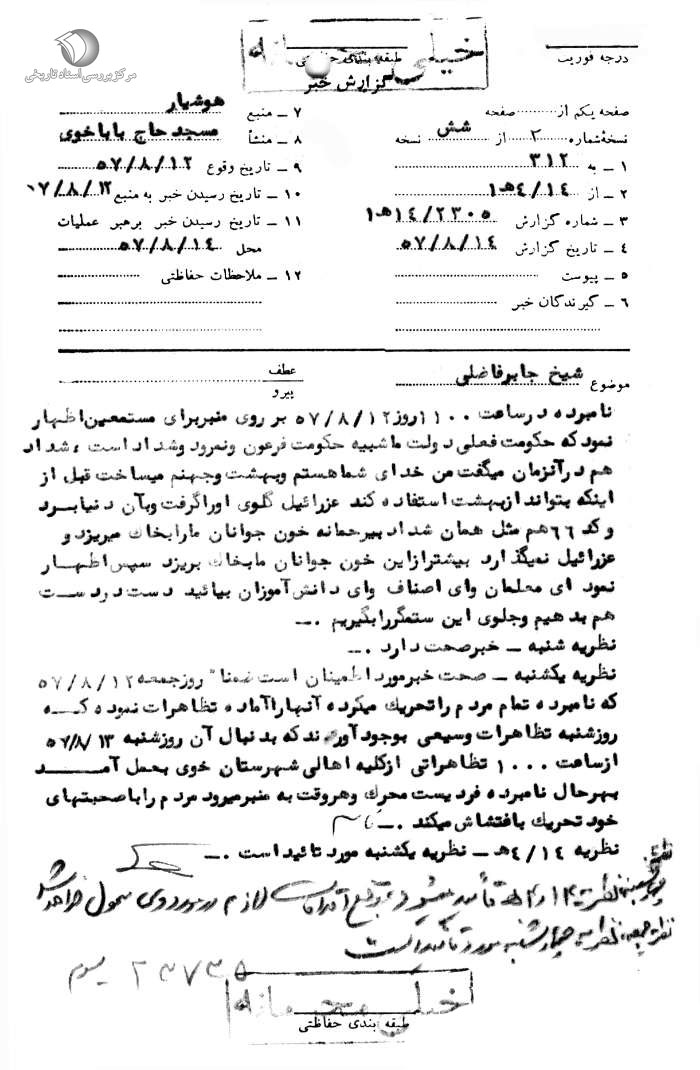 مرکز بررسی اسناد تاریخی
خیلی محرمانه
طبقه بندی حفاظتی
گزارش خبر
درجه فوریت
صفحه یکم از صفحه
نسخه شماره ۲ از شش نسخه
۱ ــ به ۳۱۲
۲ ــ از ۴/۱۴ هـ ۱
۳ ــ شماره گزارش ۱۴/۲۳۰۵ هـ ۱
۴ ــ تاریخ گزارش ۵۷/۸/۱۴
۵ ــ پیوست
۶ ــ گیرندگان خبر
۷ ــ منبع هوشیار
۸ ــ منشأ مسجد حاج باباخوی
۹ ــ تاریخ وقوع ۵۷/۸/۱۲
۱۰ ــ تاریخ رسیدن خبر به منبع ۷/۸/۱۲
۱۱ ــ تاریخ رسیدن خبر برهبر عملیات
محل ۵۷/۸/۱۴
۱۲ ــ ملاحظات حفاظتی
موضوع شیخ جابرفاضلی
عطف
پیرو
نامبرده درساعت ۱۱۰۰روز۵۷/۸/۱۲ بر روی منبربرای مستمعین اظهار
نمود که حکومت فعلی دولت ما شبیه حکومت فرعون ونمرود وشداد است ، شداد
هم درآنزمان میگفت من خدای شما هستم وبهشت وجهنم میساخت قبل از
اینکه بتواند ازبهشت استفاده کند عزرائیل گلوی اوراگرفت وبآن دنیابرد
و کد ۶۶هم مثل همان شداد بیرحمانه خون جوانان مارابخاک میریزد و
عزرائیل نمیگذارد بیشترازاین خون جوانان مابخاک بریزد سپس اظهار
نمود ای معلمان وای اصناف وای دانش آموزان بیائید دست دردست
هم بدهیم وجلوی این ستمگررابگیریم .ــ
نظریه شنبه ــ خبرصحت دارد .ــ
نظریه یکشنبه ــ صحت خبرمورد اطمینان است ضمنا" روزجمعه۵۷/۸/۱۲
که نامبرده تمام مردم راتحریک میکرده آنهاراآماده تظاهرات نموده کـه
روزشنبه تظاهرات وسیعی بوجودآورند که بدنبال آن روزشنبه ۵۷/۸/۱۳
ازساعت ۱۰۰۰ تظاهراتی ازکلیه اهالی شهرستان خوی بعمل آمـد
بهرحال نامبرده فردیست محرک وهروقت به منبرمیرود مردم راباصحبتهای
خود تحریک بافتشاش میکند .ــ
نظریه ۴/۱۴هـ ــ نظریه یکشنبه مورد تائید است .ــ
نظریه
نظریه جمعه نظریه چهارشنبه مورد تأئید است
خیلی محرمانه
طبقه بندی حفاظتی